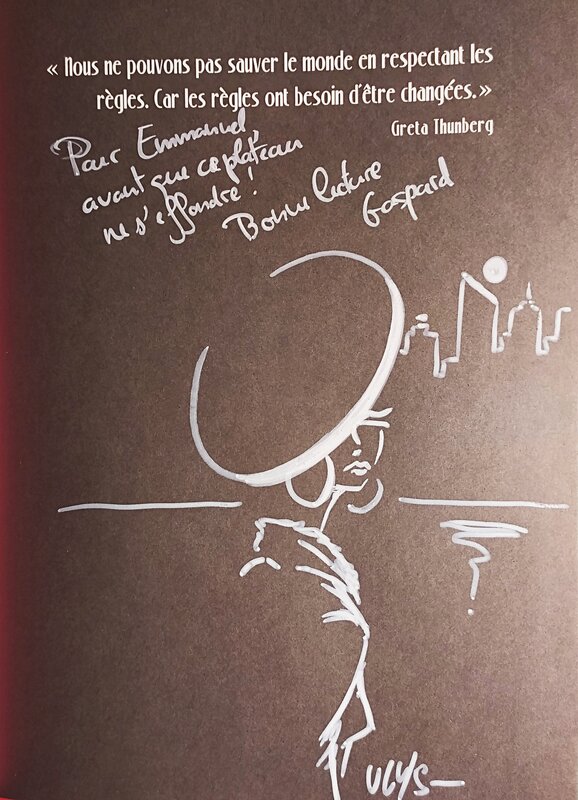 « Nous ne pouvons pas sauver le monde en respectant les
règles. Car les règles ont besoin d'être changées. »
Greta Thunberg
Pour Emmanuel,
avant que ce plateau
ne s'effondre !
Bonne lecture
Gaspard
ULYS